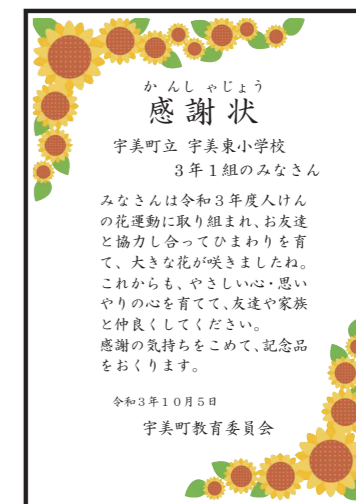 かんしゃじょう
感謝状
宇美町立 宇美東小学校
３年１組のみなさん
みなさんは令和３年度人けん
の花運動に取り組まれ、お友達
と協力し合ってひまわりを育
て、大きな花が咲きましたね。
これからも、やさしい心・思い
やりの心を育てて、友達や家族
と仲良くしてください。
感謝の気持ちをこめて、記念品
をおくります。
令和３年１０月５日
宇美町教育委員会